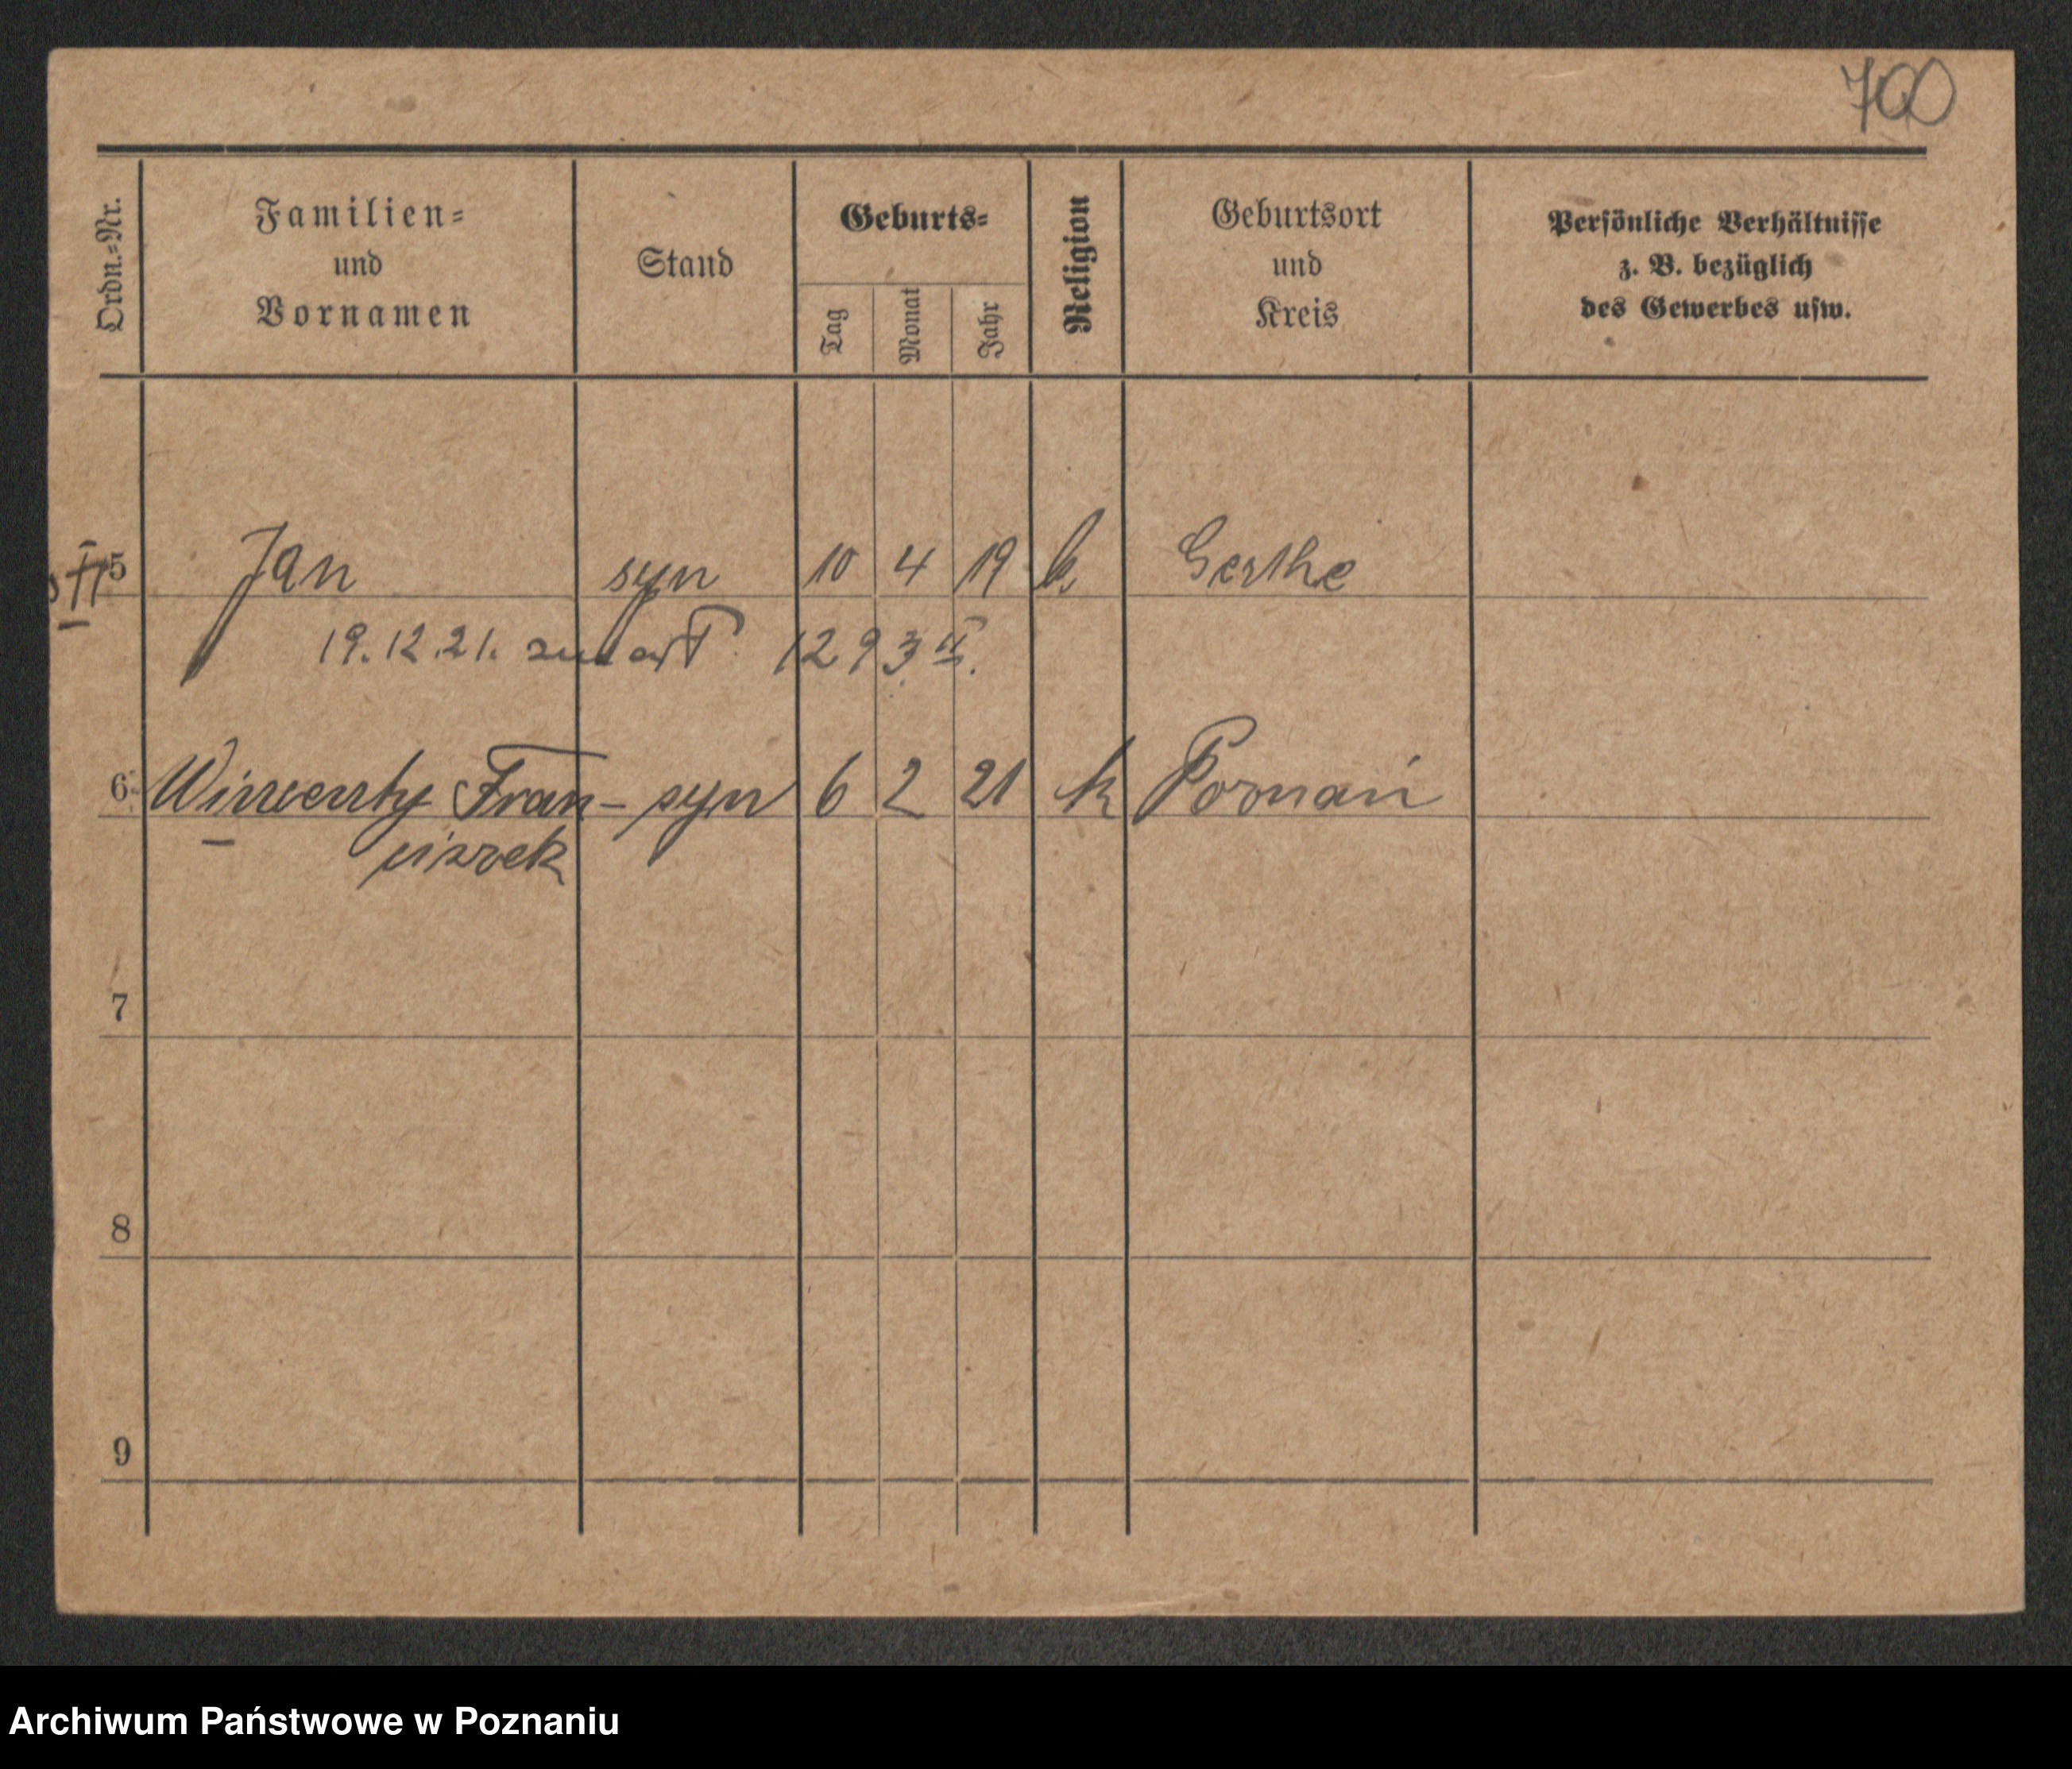 700
Ordn.=Nr.
Familien=
und
Vornamen
Stand
Geburts=
Tag
Monat
Jahr
Religion
Geburtsort
und
Kreis
Persönliche Verhältnisse
z. B. bezüglich
des Gewerbes usw.
5 Jan syn 10 4 19 k Gerthe
19.12.21. zmarł 1293 II.
6 Wincenty Fran- syn 6 2 21 k Poznań
ciszek
7
8
9
Archiwum Państwowe w Poznaniu